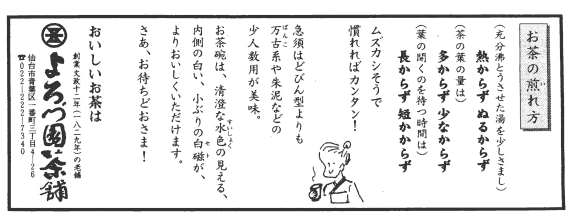 お茶の煎れ方
(充分沸とうさせた湯を少しさまし)
熱からず ぬるからず
(茶の葉の量は)
多からず 少なからず
(葉の開くのを待つ時間は)
長からず 短かからず
ムズカシそうで
慣れればカンタン!
急須はどびん型よりも
万古系や朱泥などの
ばんこ
少人数用が美味。
お茶碗は、清澄な水色の見える、
すいしょく
内側の白い、小ぶりの白磁が、
よりおいしくいただけます。
さあ、お待ちどおさま!
おいしいお茶は
創業文政十二年(一八二九年)の老舗
よろづ園茶舗
仙台市青葉区一番町三丁目4-26
☎022-222-7340